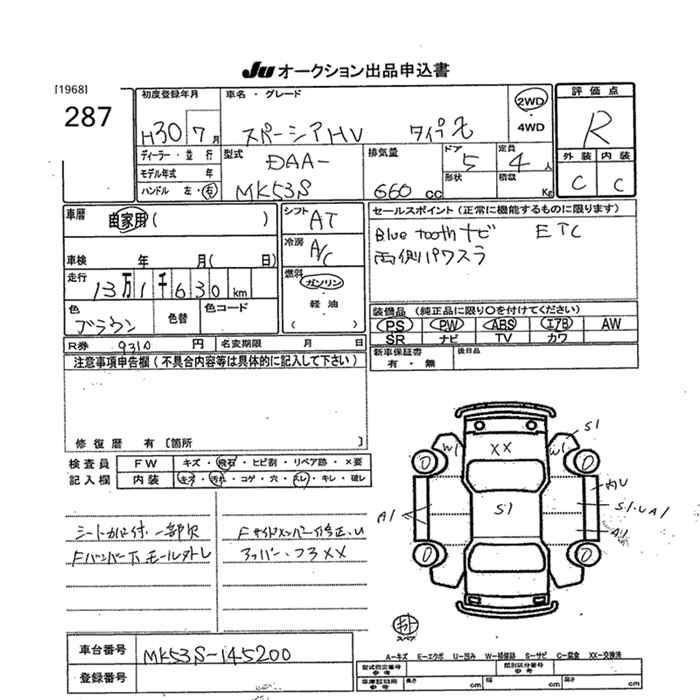 JU オークション出品申込書
[1968]
287
初度登録年月
H30 7月
車名・グレード
スペーシアHV タイプ
2WD
4WD
評価点
R
外装 内装
C C
ディーラー・並行
モデル年式 年
ハンドル 左・右
型式
DAA-
MK53S
排気量
660 cc
ドア
5
形状
定員
4 人
積載
Kg
車暦
自家用 ( )
車検 年 月( 日)
走行
13万1千630 km
色
ブラウン
色替
色コード
シフト
AT
冷房
A/C
燃料
ガソリン
軽油
( )
セールスポイント (正常に機能するものに限ります)
Blue tooth ナビ ETC
両側パワスラ
装備品 (純正品に限り○を付けてください)
PS PW ABS エアB AW
SR ナビ TV カワ
R券 9310 円 名変期限 月 日
新車保証書
有・無
後日品
注意事項申告欄 (不具合内容等は具体的に記入して下さい)
修復暦 有 [箇所 ]
検査員
記入欄
FW キズ・飛石・ヒビ割・リペア跡・×要
内装 キズ・汚れ・コゲ・穴・スレ・キレ・破レ
シートカバー付 一部欠
Fバンパー下モール外レ
Fサイドメンバー修正.U
アッパー・コア××
W1 XX W1 S1
S1
A1
S1.UA1
A1
スペア
A-キズ E-エクボ U-凹み W-補修跡 S-サビ C-腐食 XX-交換済
車台番号 MK53S-145200
登録番号
型式指定番号
参考
類別区分番号
参考
車庫証明用
参考
長さ cm 幅 cm 高さ cm